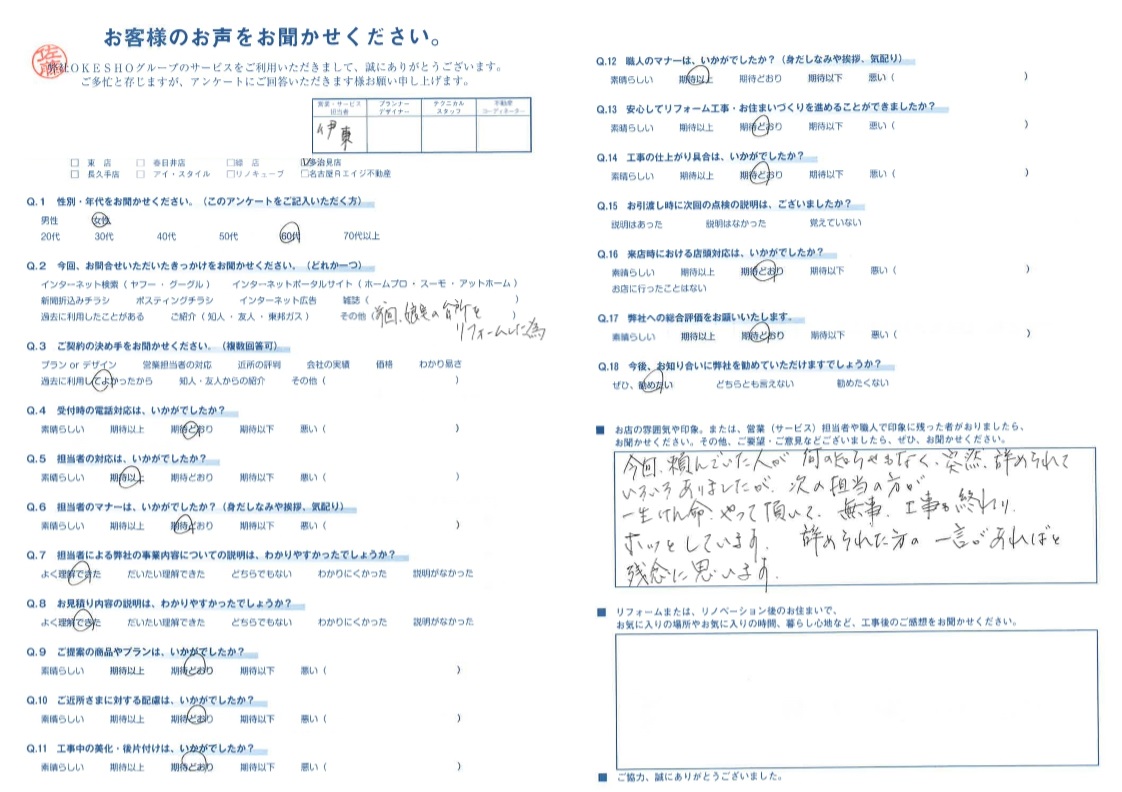 お客様のお声をお聞かせください。
佐藤
弊社OKESHOグループのサービスをご利用いただきまして、誠にありがとうございます。
ご多忙と存じますが、アンケートにご回答いただきます様お願い申し上げます。
営業・サービス担当者 プランナーデザイナー テクニカルスタッフ 不動産コーディネーター
伊東
□ 東 店 □ 春日井店 □緑 店 ☑多治見店
□ 長久手店 □ アイ・スタイル □リノキューブ □名古屋Rエイジ不動産
Q.1 性別・年代をお聞かせください。（このアンケートをご記入いただく方）
男性 女性
20代 30代 40代 50代 60代 70代以上
Q.2 今回、お問合せいただいたきっかけをお聞かせください。（どれか一つ）
インターネット検索（ ヤフー ・ グーグル ） インターネットポータルサイト（ ホームプロ ・ スーモ ・ アットホーム ）
新聞折込みチラシ ポスティングチラシ インターネット広告 雑誌（ ）
過去に利用したことがある ご紹介（ 知人 ・ 友人 ・ 東邦ガス ） その他（前回、娘宅の台所を ）
リフォームした為
Q.3 ご契約の決め手をお聞かせください。（複数回答可）
プラン or デザイン 営業担当者の対応 近所の評判 会社の実績 価格 わかり易さ
過去に利用してよかったから 知人・友人からの紹介 その他（ ）
Q.4 受付時の電話対応は、いかがでしたか？
素晴らしい 期待以上 期待どおり 期待以下 悪い（ ）
Q.5 担当者の対応は、いかがでしたか？
素晴らしい 期待以上 期待どおり 期待以下 悪い（ ）
Q.6 担当者のマナーは、いかがでしたか？（身だしなみや挨拶、気配り）
素晴らしい 期待以上 期待どおり 期待以下 悪い（ ）
Q.7 担当者による弊社の事業内容についての説明は、わかりやすかったでしょうか？
よく理解できた だいたい理解できた どちらでもない わかりにくかった 説明がなかった
Q.8 お見積り内容の説明は、わかりやすかったでしょうか？
よく理解できた だいたい理解できた どちらでもない わかりにくかった 説明がなかった
Q.9 ご提案の商品やプランは、いかがでしたか？
素晴らしい 期待以上 期待どおり 期待以下 悪い（ ）
Q.10 ご近所さまに対する配慮は、いかがでしたか？
素晴らしい 期待以上 期待どおり 期待以下 悪い（ ）
Q.11 工事中の美化・後片付けは、いかがでしたか？
素晴らしい 期待以上 期待どおり 期待以下 悪い（ ）
Q.12 職人のマナーは、いかがでしたか？（身だしなみや挨拶、気配り）
素晴らしい 期待以上 期待どおり 期待以下 悪い（ ）
Q.13 安心してリフォーム工事・お住まいづくりを進めることができましたか？
素晴らしい 期待以上 期待どおり 期待以下 悪い（ ）
Q.14 工事の仕上がり具合は、いかがでしたか？
素晴らしい 期待以上 期待どおり 期待以下 悪い（ ）
Q.15 お引渡し時に次回の点検の説明は、ございましたか？
説明はあった 説明はなかった 覚えていない
Q.16 来店時における店頭対応は、いかがでしたか？
素晴らしい 期待以上 期待どおり 期待以下 悪い（ ）
お店に行ったことはない
Q.17 弊社への総合評価をお願いいたします。
素晴らしい 期待以上 期待どおり 期待以下 悪い（ ）
Q.18 今後、お知り合いに弊社を勧めていただけますでしょうか？
ぜひ、勧めたい どちらとも言えない 勧めたくない
■ お店の雰囲気や印象。または、営業（サービス）担当者や職人で印象に残った者がおりましたら、
お聞かせください。その他、ご要望・ご意見などございましたら、ぜひ、お聞かせください。
今回、頼んでいた人が 何の知らせもなく、突然、辞められて
いろいろありましたが、次の担当の方が
一生けん命、やって頂いて、無事、工事も終わり、
ホッとしています。 辞められた方の 一言があればと
残念に思います。
■ リフォームまたは、リノベーション後のお住まいで、
お気に入りの場所やお気に入りの時間、暮らし心地など、工事後のご感想をお聞かせください。
■ ご協力、誠にありがとうございました。